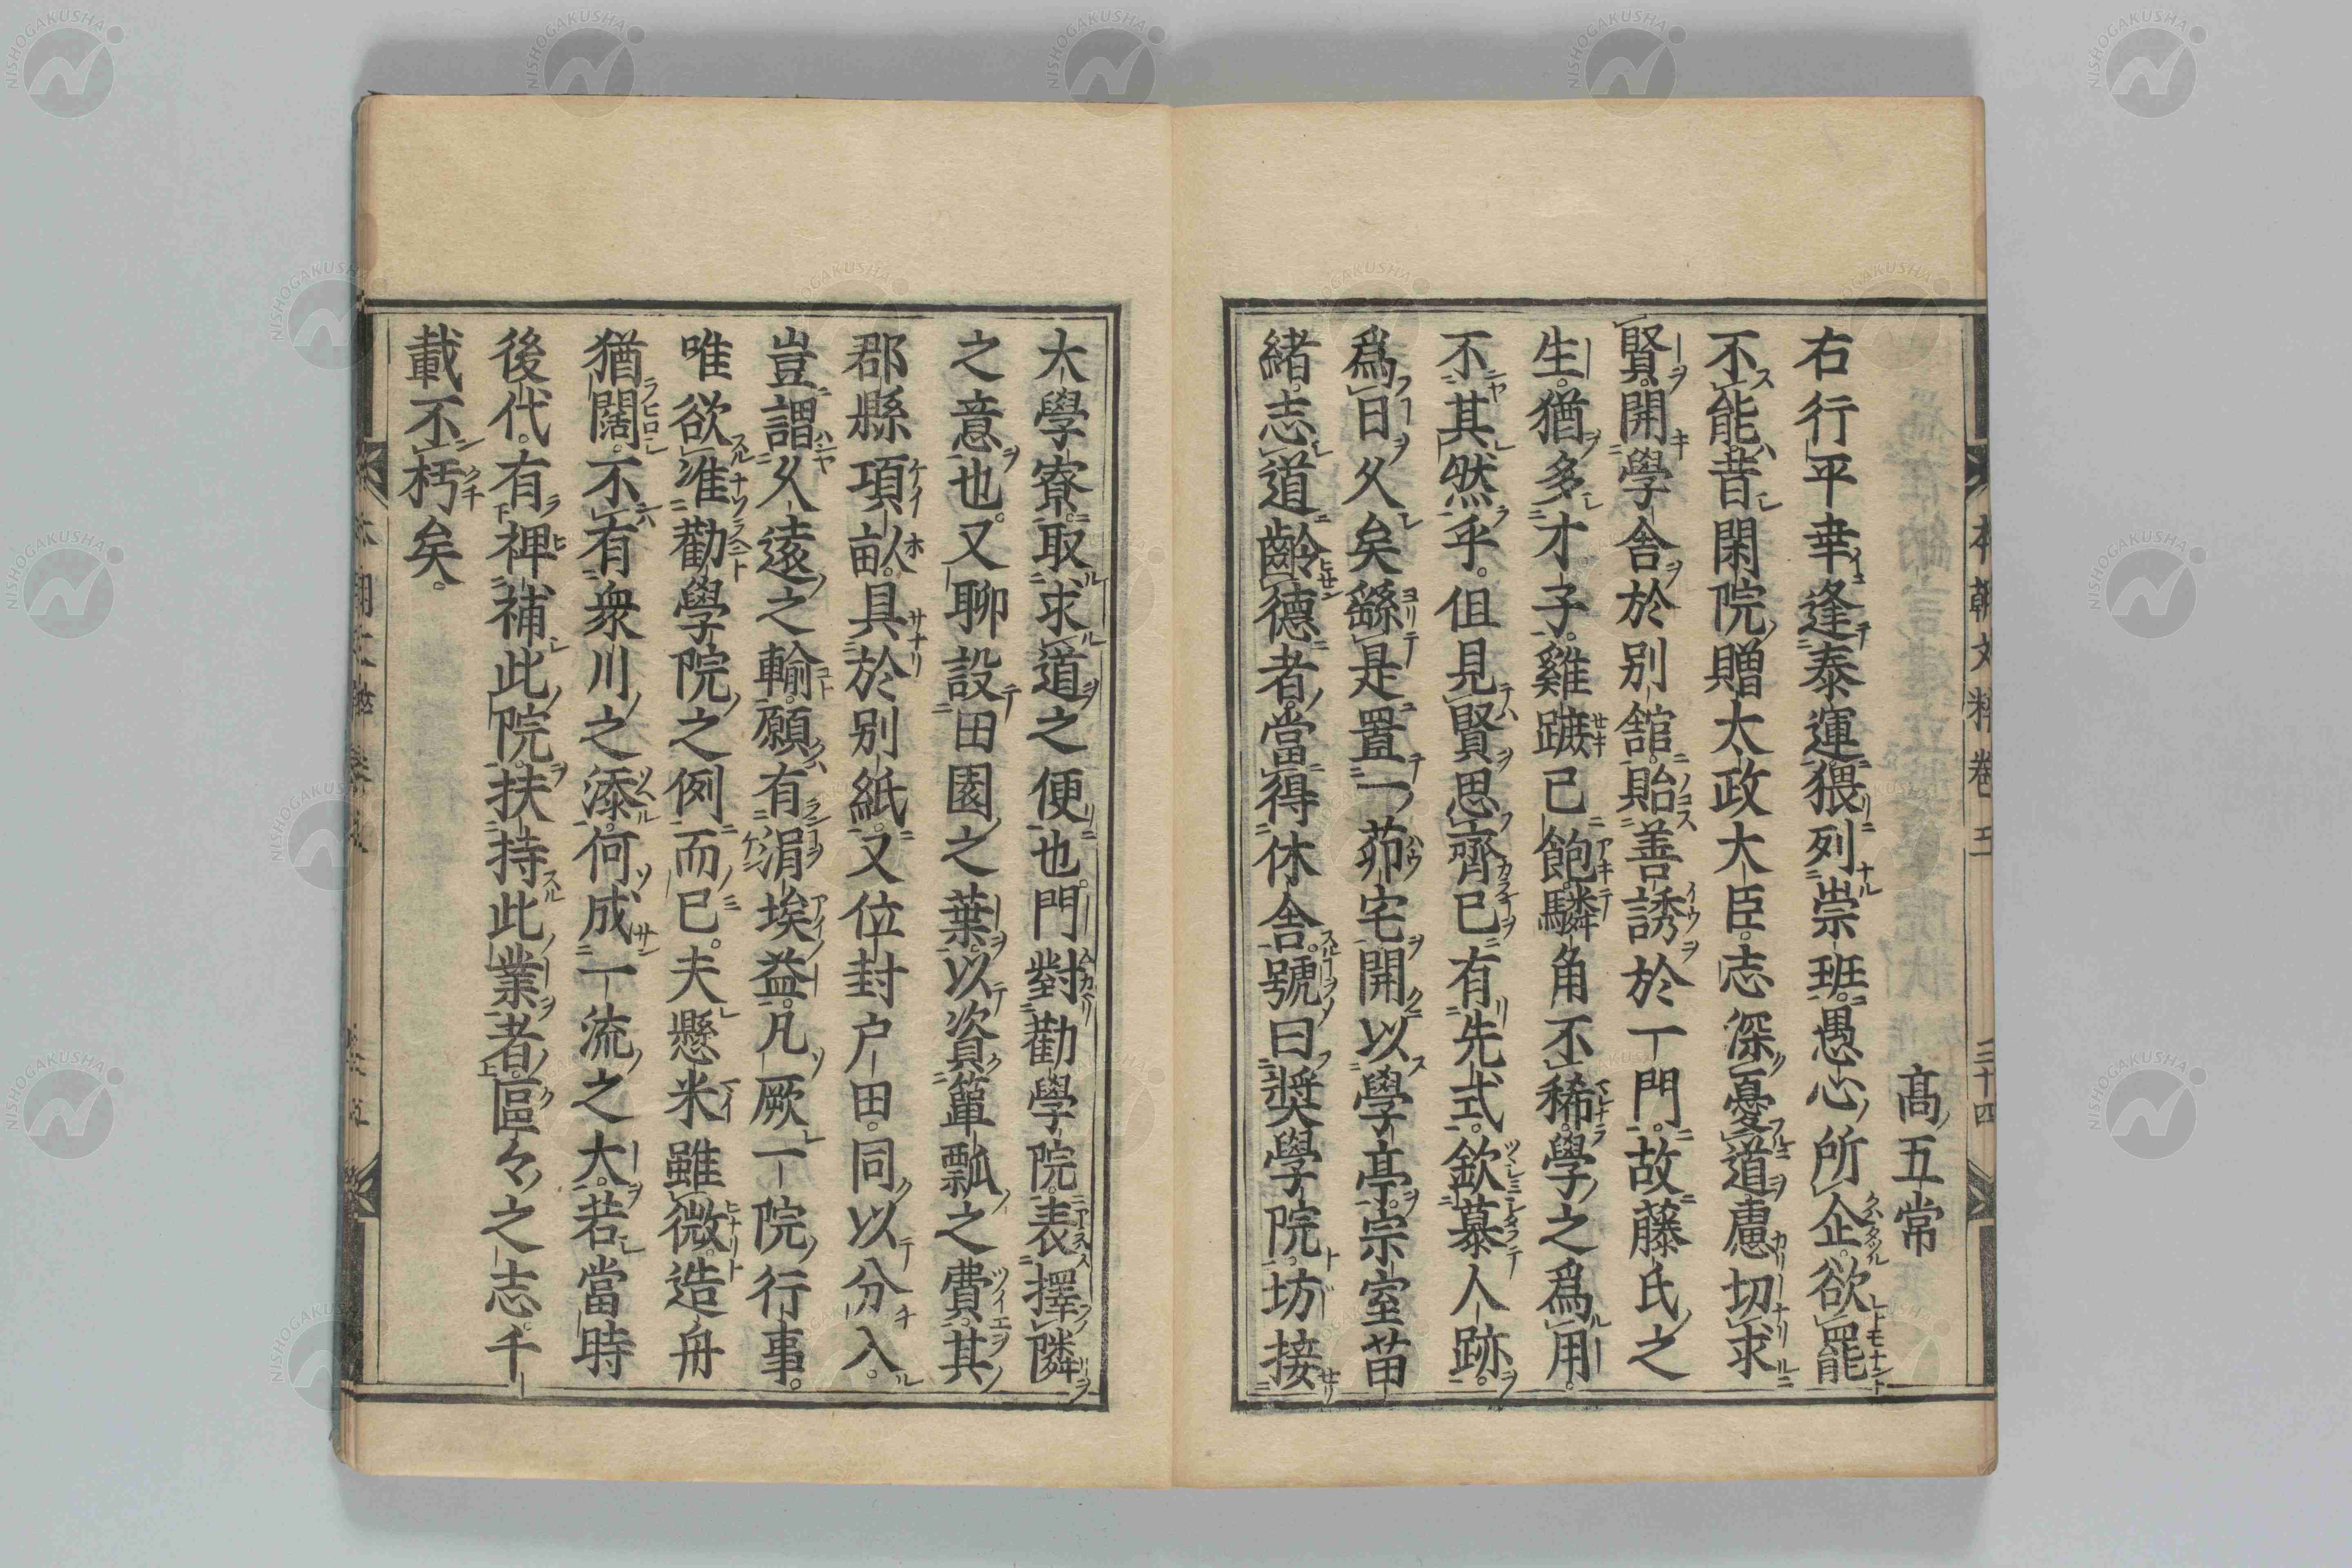 高五常
右行平幸逢泰運猥列崇班愚心所企欲罷
不能昔閑院贈大政大臣志深憂道慮切求
賢開學舍於別舘貽善誘於一門故藤氏之
生猶多才子雞蹠已飽驎角不稀學之爲用
不其然乎但見賢思齊已有先式欽慕人跡
爲日久矣繇是置一茆宅開以學亭宗室苗
緒志道齡德者當得休舍號曰奬學院坊接
大學寮取求道之便也門對勸學院表擇隣
之意也又聊設田園之葉以資簞瓢之費其
郡縣項畝具於別紙又位封户田同以分入
豈謂久遠之輸願有涓埃益凡厥一院行事
唯欲准勸學院之例而已夫懸米雖微造舟
猶闊不有衆川之添何成一流之大若當時
後代有裨補此院扶持此業者區々之志千
載不朽矣
本朝文粹卷五 三十四
NISHOGAKUSHA